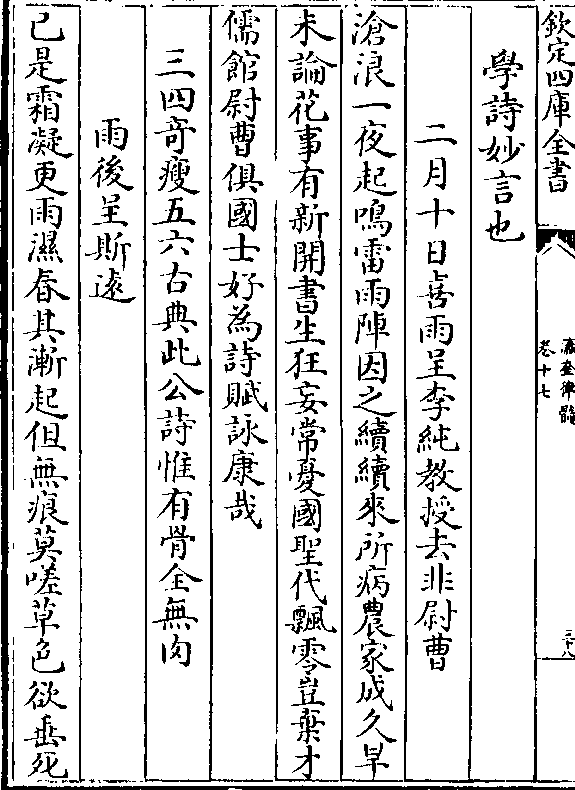 欽定四庫全書
瀛奎律髓
卷十七
三十八
學詩妙言也
二月十日喜雨呈李純教授去非尉曹
滄浪一夜起鳴雷雨陣因之續續來所病農家成久旱
未論花事有新開書生狂妄常憂國聖代飄零豈棄才
儒館尉曹俱國士好為詩賦詠康哉
三四竒瘦五六古典此公詩惟有骨全無肉
雨後呈斯逺
已是霜凝更雨濕春其漸起但無痕莫嗟草色欲垂死